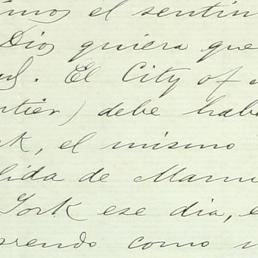 imos el sentin
Dios quiera que
El City of
ntier) debe hab
k, el mismo
lida de
York ese dia, e
prendo como